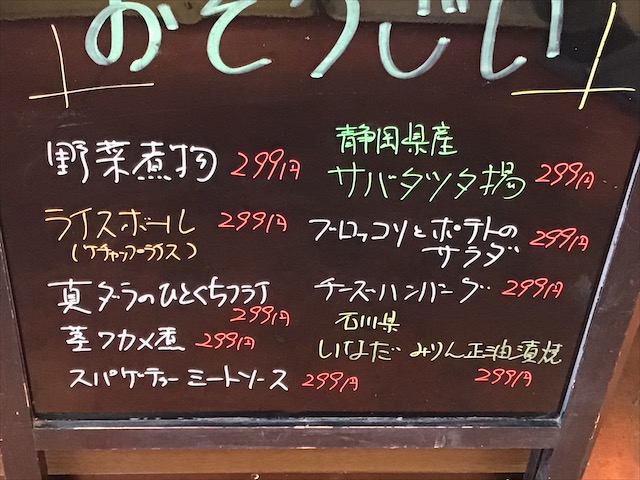 おそうじい
野菜煮物 299円
ライスボール 299円
(ケチャップライス)
真ダラのひとくちフライ
299円
茎ワカメ煮 299円
スパゲティーミートソース 299円
静岡県産
サバタツタ揚 299円
ブロッコリとポテトの
サラダ 299円
チーズハンバーグ 299円
石川県
いなだ みりん正油漬焼
299円